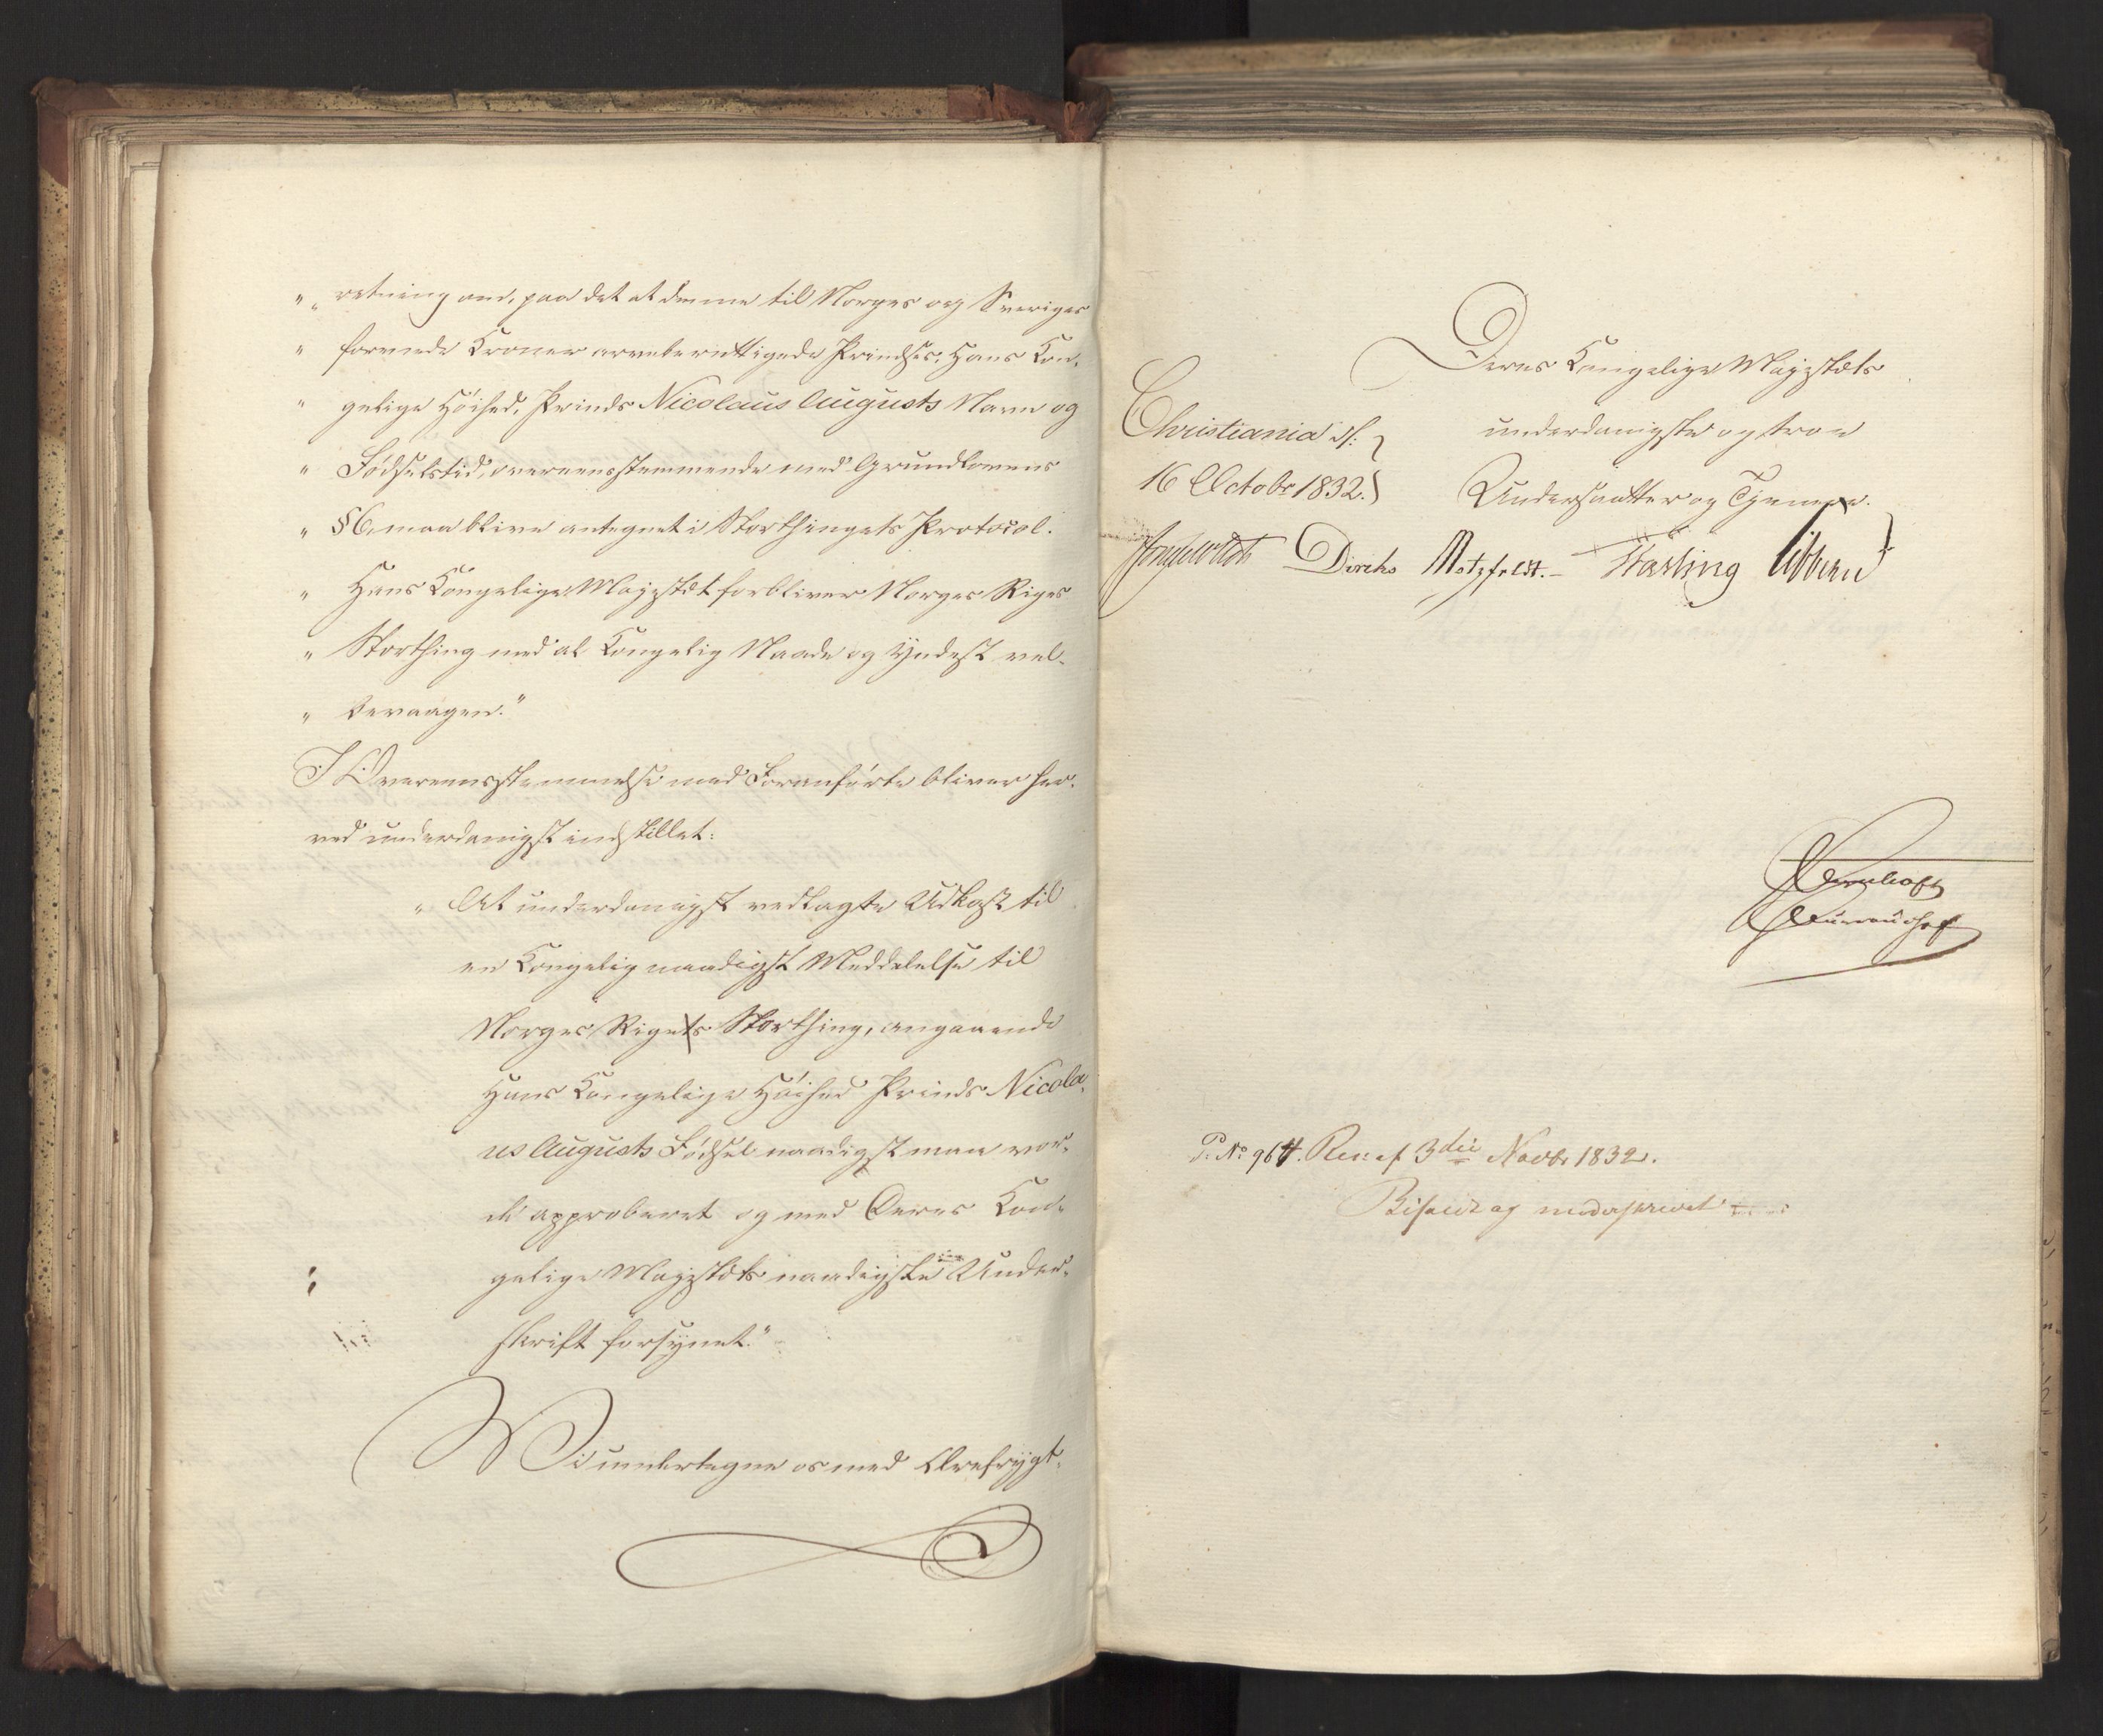 " retning om, paa det at denne til Norges og Sveriges
" forenede Kroner arveberettigede Prindses, Hans Kon-
" gelige Höihed, Prinds Nicolaus Augusts Navn og
" Födselstid, overeensstemmende med Grundlovens
" § 6, maa blive antegnet i Storthingets Protocol.
" Hans Kongelige Majestæt forbliver Norges Riges
" Storthing med al Kongelig Naade og Yndest vel-
" bevaagen."
I Overeensstemmelse med Foranförte bliver her-
ved underdanigst indstillet:
" At underdanigst vedlagte Udkast til
en Kongelig naadigst Meddelelse til
Norges Riges Storthing, angaaende
Hans Kongelige Höihed Prinds Nicola-
us Augusts Födsel naadigst maa vor-
de approberet og med Deres Kon-
gelige Majestæts naadigste Under-
skrift forsynet."
Vi undertegne os med Ærefrygt.
Deres Kongelige Majestæts
underdanigste og troe
Undersaatter og Tjenere.
Christiania d.
16 Octobr 1832.
Diriks Motzfeldt. Fasting Sibbern
P. No 964. Res: af 3die Novbr 1832.
Bifaldt og underskrevet